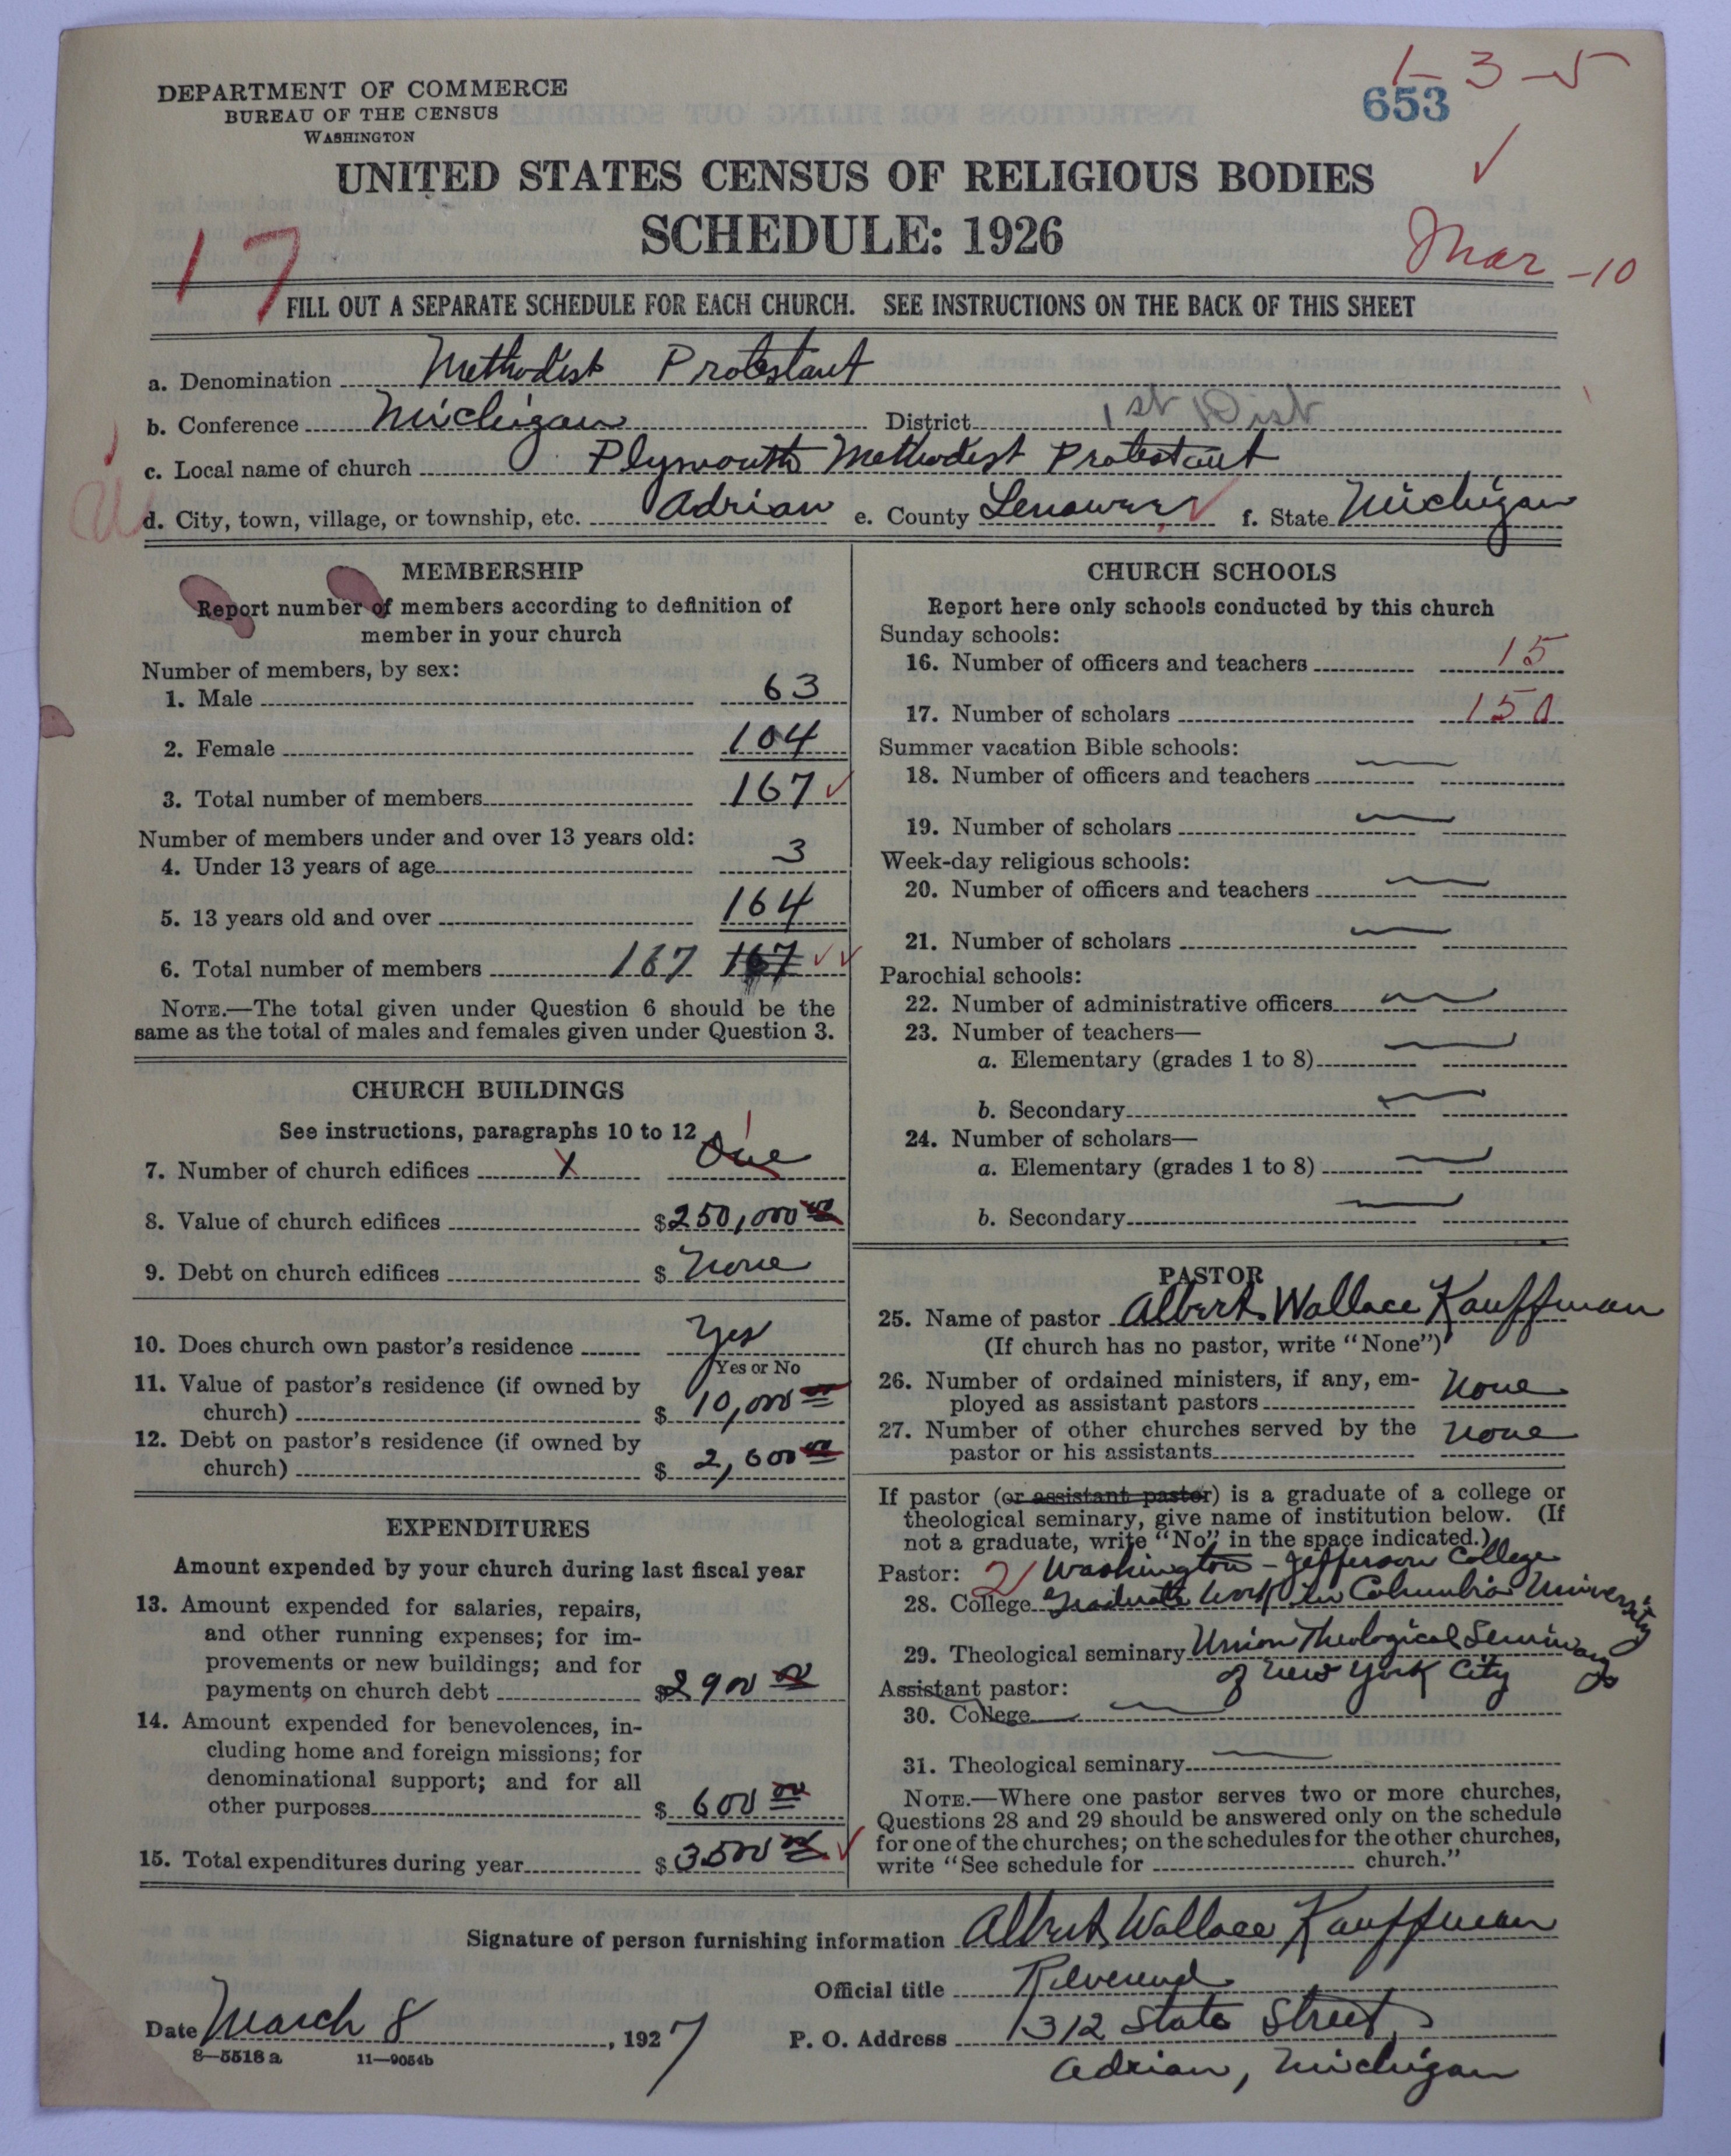 1-3-5
653
DEPARTMENT OF COMMERCE
BUREAU OF THE CENSUS
WASHINGTON
UNITED STATES CENSUS OF RELIGIOUS BODIES
SCHEDULE: 1926
17
Mar-10
FILL OUT A SEPARATE SCHEDULE FOR EACH CHURCH. SEE INSTRUCTIONS ON THE BACK OF THIS SHEET
a. Denomination Methodist Protestant
b. Conference Michigan District 1st Dist
c. Local name of church Plymouth Methodist Protestant
d. City, town, village, or township, etc. Adrian e. County Lenawee f. State Michigan
MEMBERSHIP
Report number of members according to definition of
member in your church
Number of members, by sex:
1. Male 63
2. Female 104
3. Total number of members 167
Number of members under and over 13 years old:
4. Under 13 years of age 3
5. 13 years old and over 164
6. Total number of members 167 167
NOTE.—The total given under Question 6 should be the
same as the total of males and females given under Question 3.
CHURCH BUILDINGS
See instructions, paragraphs 10 to 12
7. Number of church edifices 1 One
8. Value of church edifices $250,000 00
9. Debt on church edifices $ None
10. Does church own pastor's residence Yes
Yes or No
11. Value of pastor's residence (if owned by
church) $ 10,000 00
12. Debt on pastor's residence (if owned by
church) $ 2,600 00
EXPENDITURES
Amount expended by your church during last fiscal year
13. Amount expended for salaries, repairs,
and other running expenses; for im-
provements or new buildings; and for
payments on church debt $2900 00
14. Amount expended for benevolences, in-
cluding home and foreign missions; for
denominational support; and for all
other purposes $ 600 00
15. Total expenditures during year $3500 00
CHURCH SCHOOLS
Report here only schools conducted by this church
Sunday schools:
16. Number of officers and teachers 15
17. Number of scholars 150
Summer vacation Bible schools:
18. Number of officers and teachers
19. Number of scholars
Week-day religious schools:
20. Number of officers and teachers
21. Number of scholars
Parochial schools:
22. Number of administrative officers
23. Number of teachers—
a. Elementary (grades 1 to 8)
b. Secondary
24. Number of scholars—
a. Elementary (grades 1 to 8)
b. Secondary
PASTOR
25. Name of pastor Albert Wallace Kauffman
(If church has no pastor, write "None")
26. Number of ordained ministers, if any, em-
ployed as assistant pastors None
27. Number of other churches served by the
pastor or his assistants None
If pastor (or assistant pastor) is a graduate of a college or
theological seminary, give name of institution below. (If
not a graduate, write "No" in the space indicated.)
Pastor: 2 Washington - Jefferson College
28. College Graduate Work in Columbia University
29. Theological seminary Union Theological Seminary
of New York City
Assistant pastor:
30. College
31. Theological seminary
NOTE.—Where one pastor serves two or more churches,
Questions 28 and 29 should be answered only on the schedule
for one of the churches; on the schedules for the other churches,
write "See schedule for church."
Signature of person furnishing information Albert Wallace Kauffman
Official title Reverend
Date March 8, 1927 P. O. Address 1312 State Street,
Adrian, Michigan
8—5518 a 11—9054b